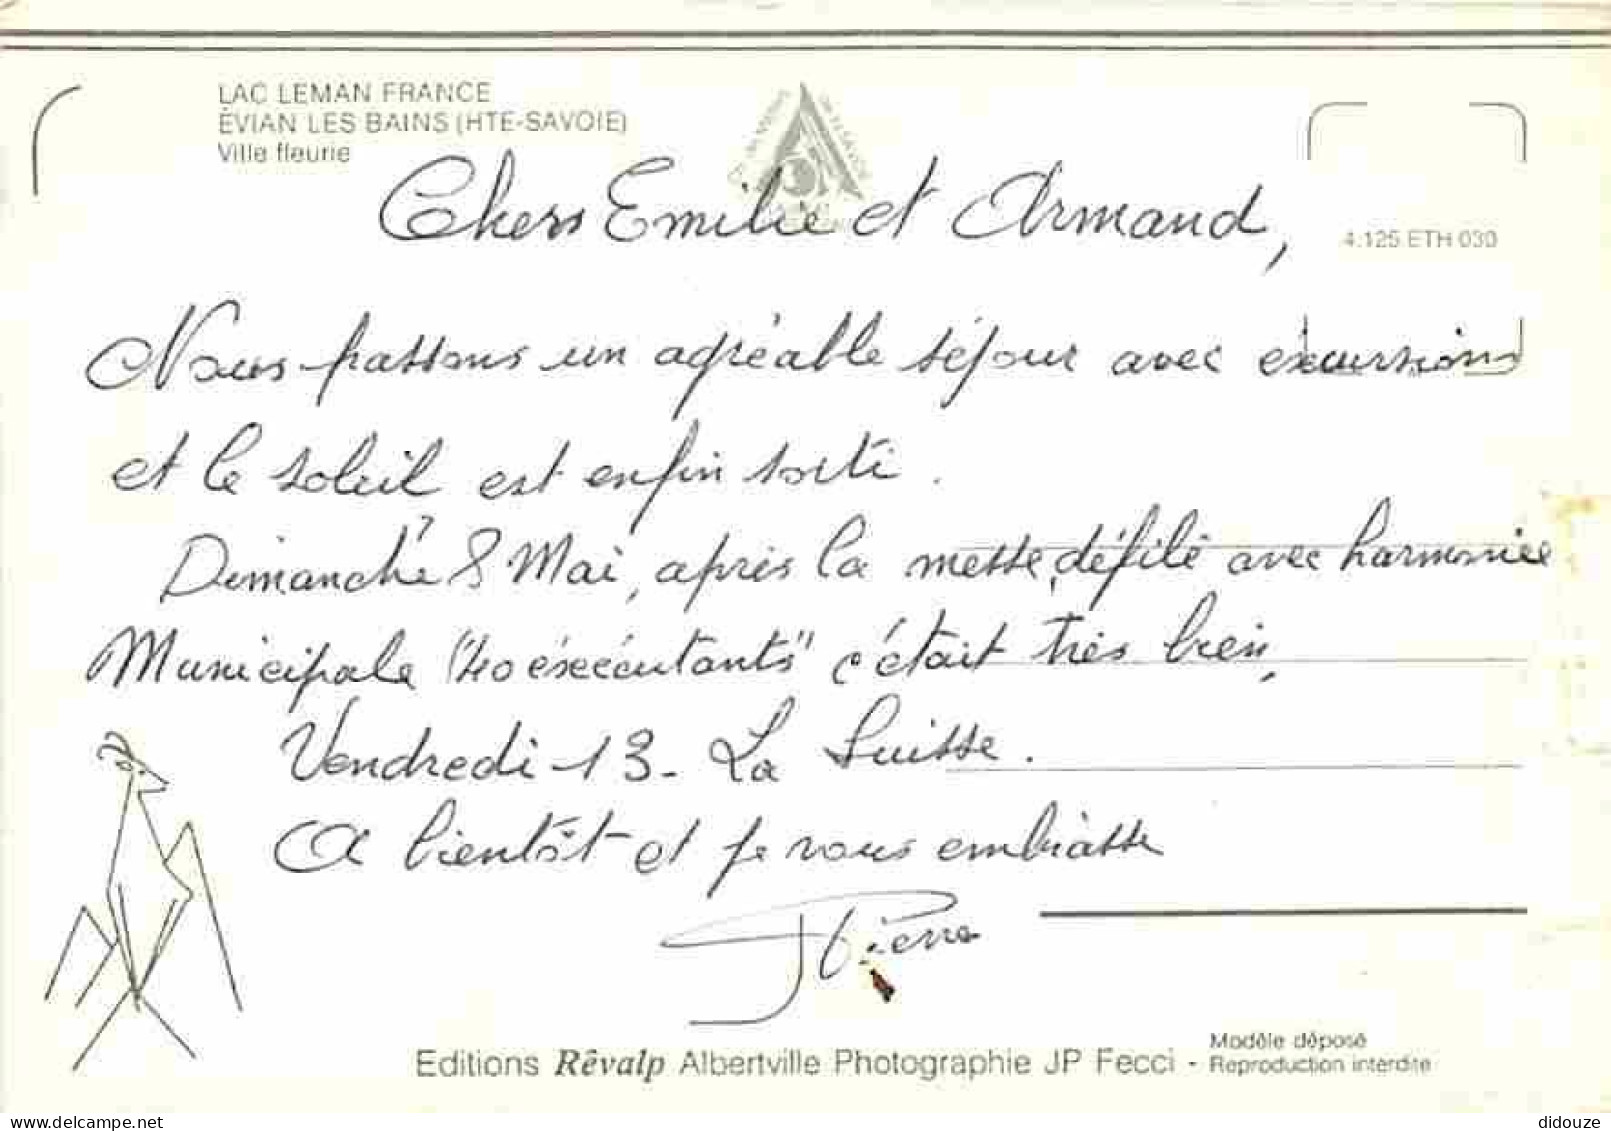 LAC LEMAN FRANCE
ÉVIAN LES BAINS (HTE-SAVOIE)
Ville fleurie
Chers Emilie et Armand,
4.125 ETH 030
Nous passons un agréable séjour avec éxcursions
et le soleil est enfin sorti.
Dimanche 8 Mai, après la messe, défilé avec harmonie
Municipale "40 éxécutants" c'était très bien,
Vendredi 13 - La Suisse.
A bientôt et je vous embrasse
Pierre
Editions Rêvalp Albertville Photographie JP Fecci - Modèle déposé
Reproduction interdite
www.delcampe.net
didouze